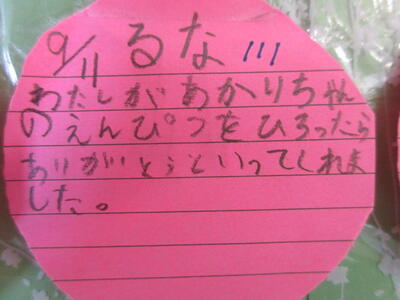 9/11 るな 111
わたしがあかりちゃん
のえんぴつをひろったら
ありがとうといってくれま
した。